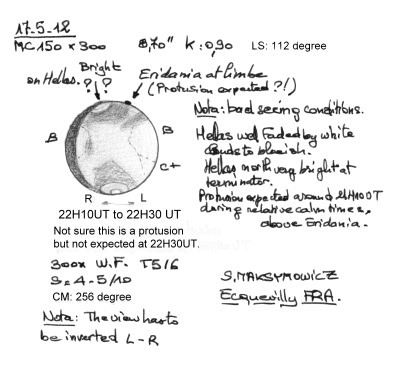 17-5-12
MC150 x 300   8,70"   K:0,90   LS: 112 degree
Bright
on Hellas.? ?
Eridania at limbe
(Protusion expected?!)
Nota: bad seeing conditions.
Hellas well faded by white
clouds to blueish.
Hellas north very bright at
terminator.
Protusion expected around 22H10UT
during relative calm times,
above Eridania.
B   B
C+
R   L
22H10UT to 22H30 UT
Not sure this is a protusion
but not expected at 22H30UT.
300x W.F. T5/6
S=4-5/10
CM: 256 degree
Nota: The view has to
be inverted L-R
S. MAKSYMOWICZ
Ecquevilly FRA.